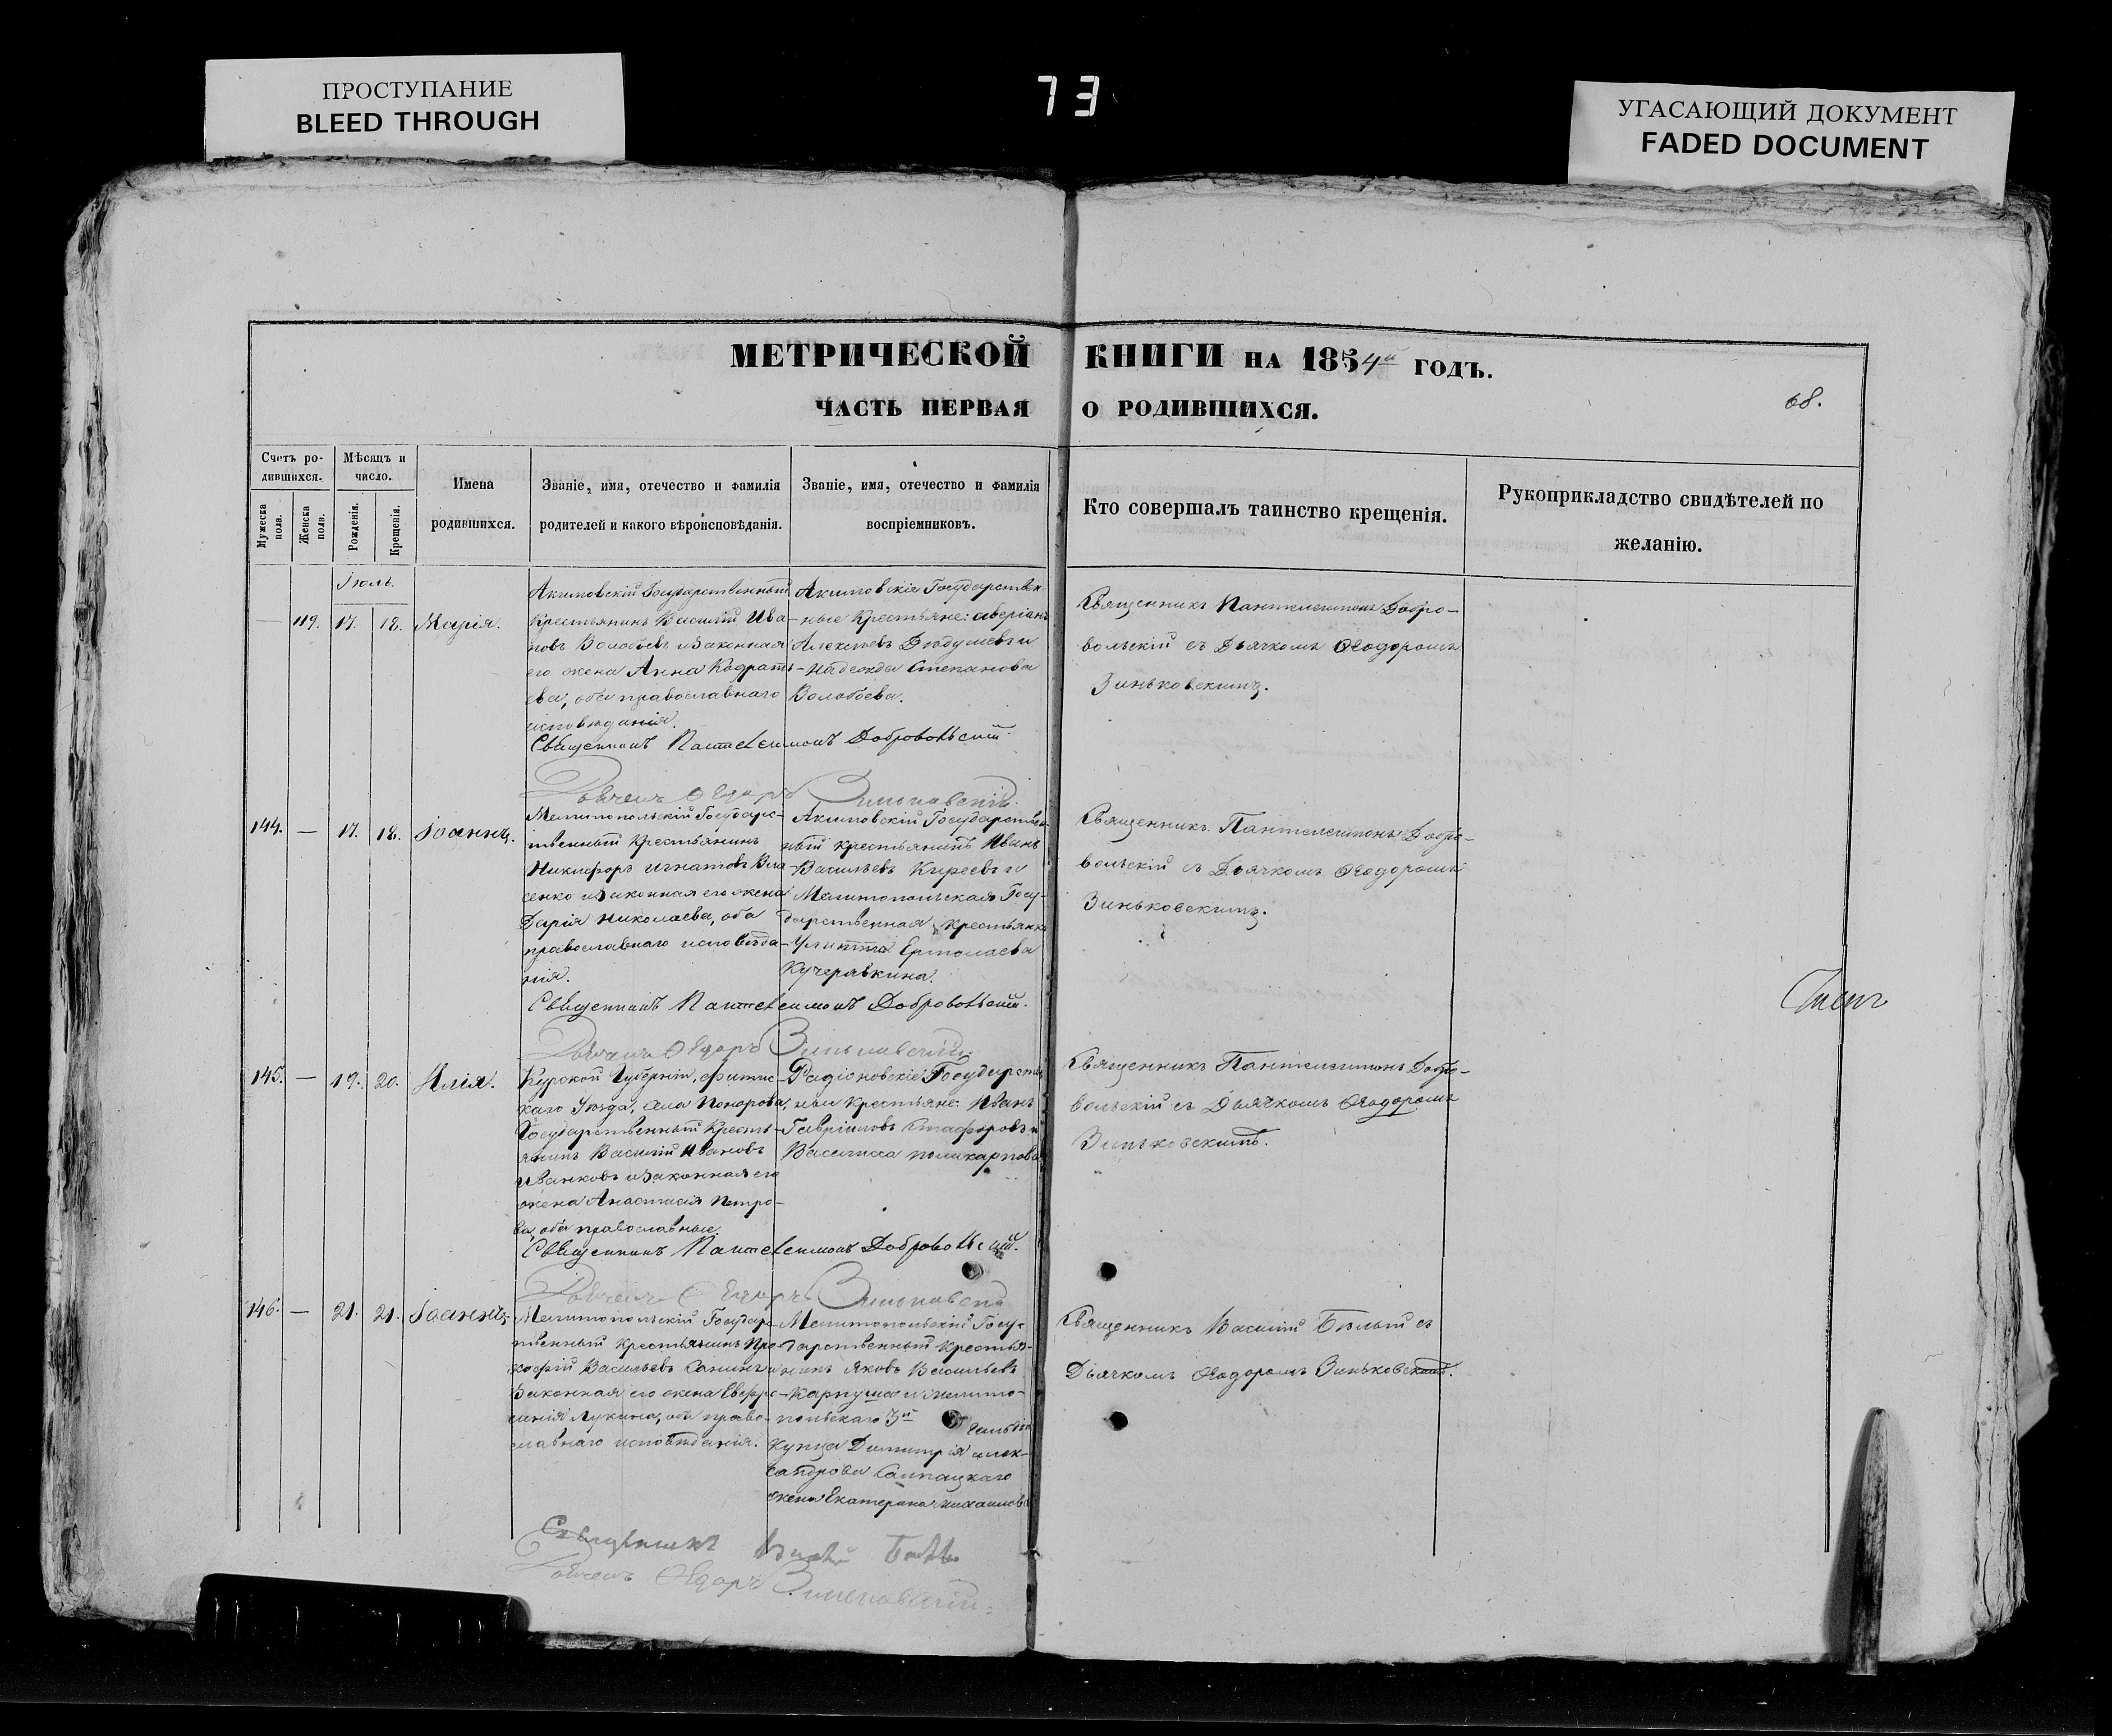 ПРОСТУПАНИЕ
BLEED THROUGH
73
УГАСАЮЩИЙ ДОКУМЕНТ
FADED DOCUMENT
МЕТРИЧЕСКОЙ КНИГИ НА 1854й ГОДЪ.
ЧАСТЬ ПЕРВАЯ О РОДИВШИХСЯ.
68.
Счетъ ро-
дившихся.
Мужеска пола.
Женска пола.
Мѣсяцъ и
число.
Рожденія.
Крещенія.
Имена
родившихся.
Званіе, имя, отечество и фамилія
родителей и какого вѣроисповѣданія.
Званіе, имя, отечество и фамилія
воспріемниковъ.
Кто совершалъ таинство крещенія.
Рукоприкладство свидѣтелей по
желанію.
Іюль.
— 119. 17. 18. Марія.
Акимовскій Государственный
Крестьянинъ Василій Ива-
новъ Волобоевъ и Законная
его жена Анна Кодрать-
ева, оба православнаго
исповѣданія.
Акимовскіе Государствен-
ные Крестьяне: Аверіанъ
Алексѣевъ и
Надежда Степанова
Волобоева.
Священникъ Пантелеимонъ Добро-
вольскій съ Дьячкомъ Ѳеодоромъ
Зиньковскимъ.
Священникъ Пантелеимонъ Добровольскій.
Дьячекъ Ѳедоръ Зиньковскій.
144. — 17. 18. Іоаннъ.
Мелитопольскій Государс-
твенный Крестьянинъ
Никифоръ Игнатовъ Вла-
сенко и Законная его жена
Дарія Николаева, оба
православнаго исповѣда-
нія.
Акимовскій Государствен-
ный крестьянинъ Иванъ
Васильевъ Киреевъ и
Мелитопольская Госу-
дарственная крестьянка
Улитта Ермолаева
Кучерявкина.
Священникъ Пантелеимонъ Добро-
вольскій съ Дьячкомъ Ѳеодоромъ
Зиньковскимъ.
Священникъ Пантелеимонъ Добровольскій.
Дьячекъ Ѳедоръ Зиньковскій.
145. — 19. 20. Илія.
Курской Губерніи,
каго Уѣзда, села
Государственный Кресть-
янинъ Василій Ивановъ
Иванковъ и Законная его
жена Анастасія Петро-
ва, оба православные.
Радіоновскіе Государствен-
ные Крестьяне: Иванъ
Гавріиловъ и
Василисса Поликарпова
Священникъ Пантелеимонъ Добро-
вольскій съ Дьячкомъ Ѳеодоромъ
Зиньковскимъ.
Священникъ Пантелеимонъ Добровольскій.
Дьячекъ Ѳедоръ Зиньковскій
146. — 21. 21. Іоаннъ.
Мелитопольскій Государс-
твенный Крестьянинъ Про-
кофій Васильевъ Санинъ и
Законная его жена Евфро-
синія Лукина, оба право-
славнаго исповѣданія.
Мелитопольскій Госу-
дарственный крестья-
нинъ Яковъ Васильевъ
Карпуша и Мелито-
польскаго 3й Гильдіи
Купца Димитрія Алек-
сандрова
жена Екатерина Михаилова
Священникъ Василій Бѣлый съ
Дьячкомъ Ѳеодоромъ Зиньковскимъ.
Священникъ Василій Бѣлый
Дьячекъ Ѳедоръ Зиньковскій.